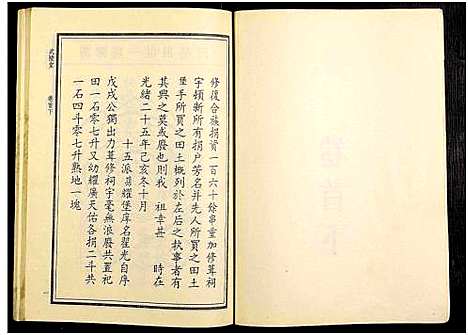 修復合族捐資一百六十餘串重加修葺祠
宇頓新所有捐戶芳名并先人所買之田土
堡手所買之田土概列於左后之执事者有
其興之莫或廢也則我　祖幸甚　時在
光緒二十五年己亥冬十月
十五派嵩耀堡庠名翟光自序
戊戌公獨出力葺修祠宇毫無浪廢共置祀
田一石零七升又幼耀廣天佑各捐二斗共
一石四斗零七升熟地一塊
武陵堂
卷首下